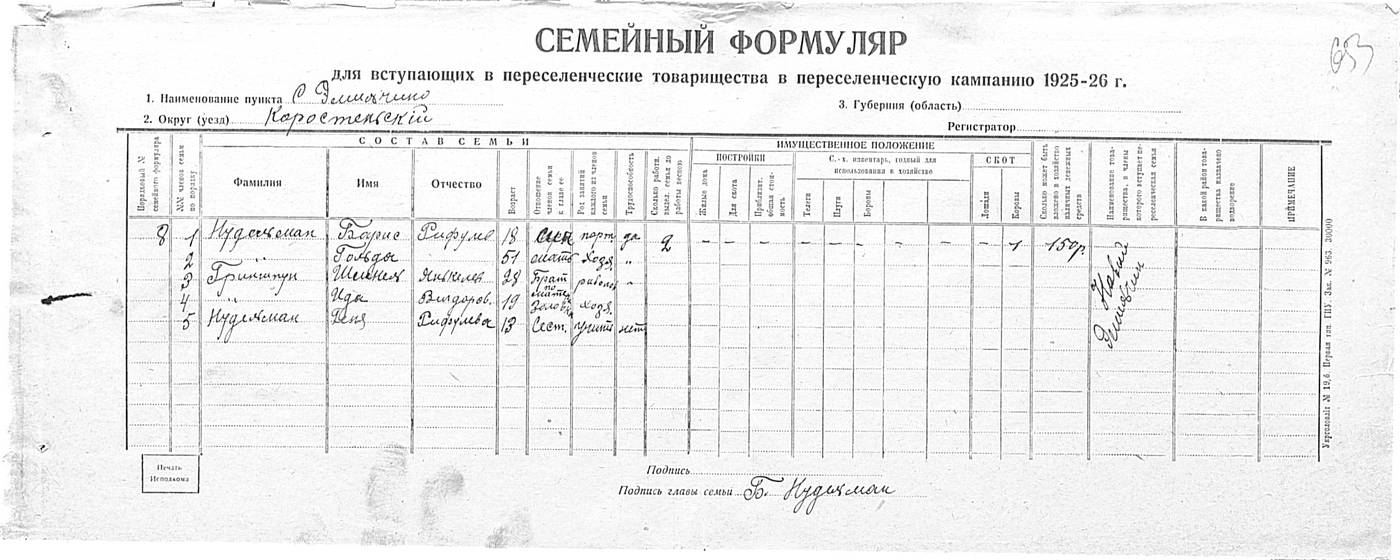 СЕМЕЙНЫЙ ФОРМУЛЯР
653
для вступающих в переселенческие товарищества в переселенческую кампанию 1925-26 г.
1. Наименование пункта С Эмильчино
3. Губерния (область)
2. Округ (уезд) Коростенський
Регистратор
СОСТАВ СЕМЬИ
ИМУЩЕСТВЕННОЕ ПОЛОЖЕНИЕ
Порядковый № семейного формуляра
№№ членов семьи по порядку
Фамилия
Имя
Отчество
Возраст
Отношение членов семьи к главе ее
Род занятий каждого из членов семьи
Трудоспособность
Сколько работн. выдел. семья до работы весною
ПОСТРОЙКИ
Жилые дома
Для скота
Приблизит. общая стоимость
С.-х. инвентарь, годный для использования в хозяйстве
Телеги
Плуги
Бороны
СКОТ
Лошади
Коровы
Сколько может быть вложено в хозяйство наличных денежных средств
Наименование товарищества, в члены которого вступает переселенческая семья
В какой район товарищества назначено водворение
ПРИМЕЧАНИЕ
8 1 Нудельман Борис 18 порт. да 2 – – – – – – – – – – 1 150р.
2 " Гольда 51 мать хозя. "
3 Гринштун 28 Брат по матер "
4 " Ида 19 хозя.
5 Нудельман 13 Сест. нет
Новый
Укрголовліт № 19,6 Первая тип. ГПУ. Зак. № 963 30000
Печать Исполкома
Подпись
Подпись главы семьи Б. Нудельман